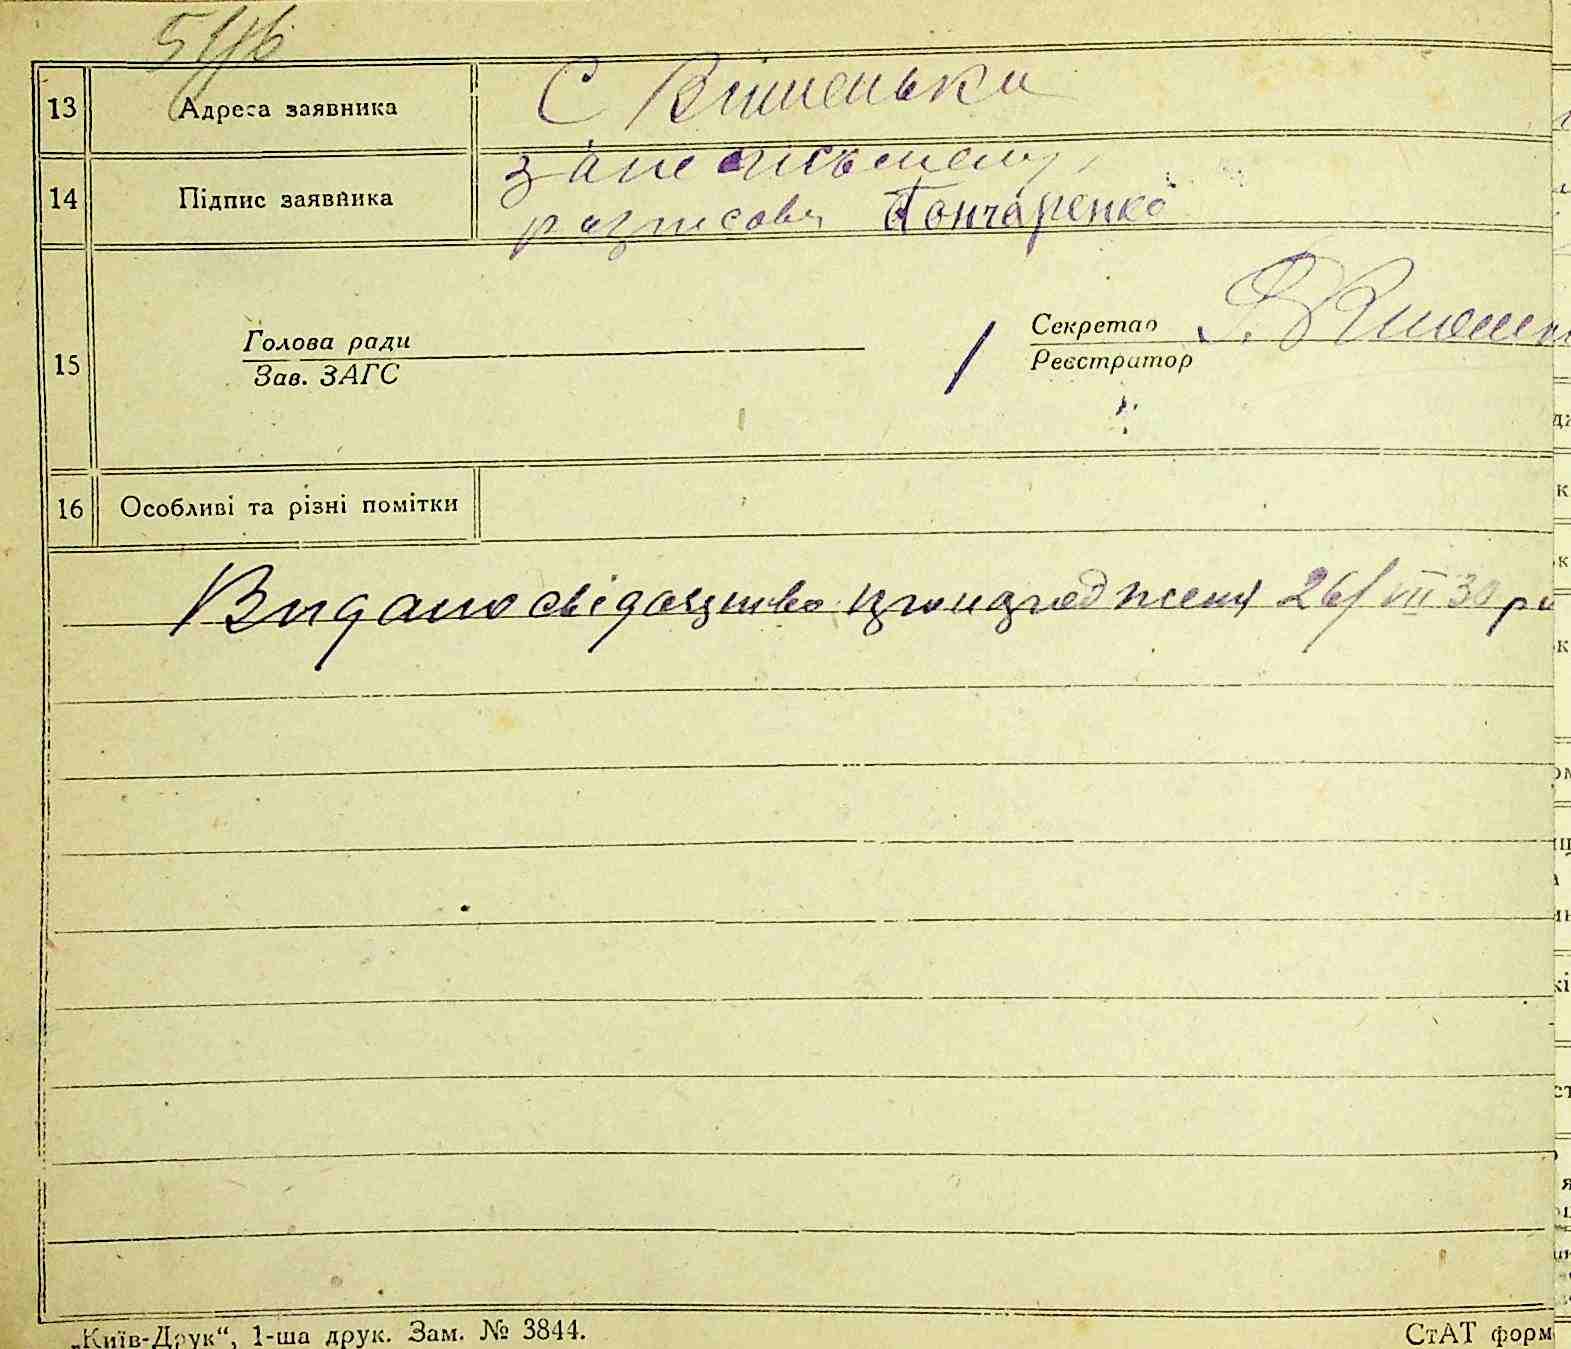 13 Адреса заявника С Вишеньки
14 Підпис заявника за неписьмену
розписовся Гончаренко
Голова ради Секретар
15
Зав. ЗАГС Реєстратор
16 Особливі та різні помітки
Видано свідоцтво 26/VII 30 ро
„Київ-Друк“, 1-ша друк. Зам. № 3844. СтАТ форм